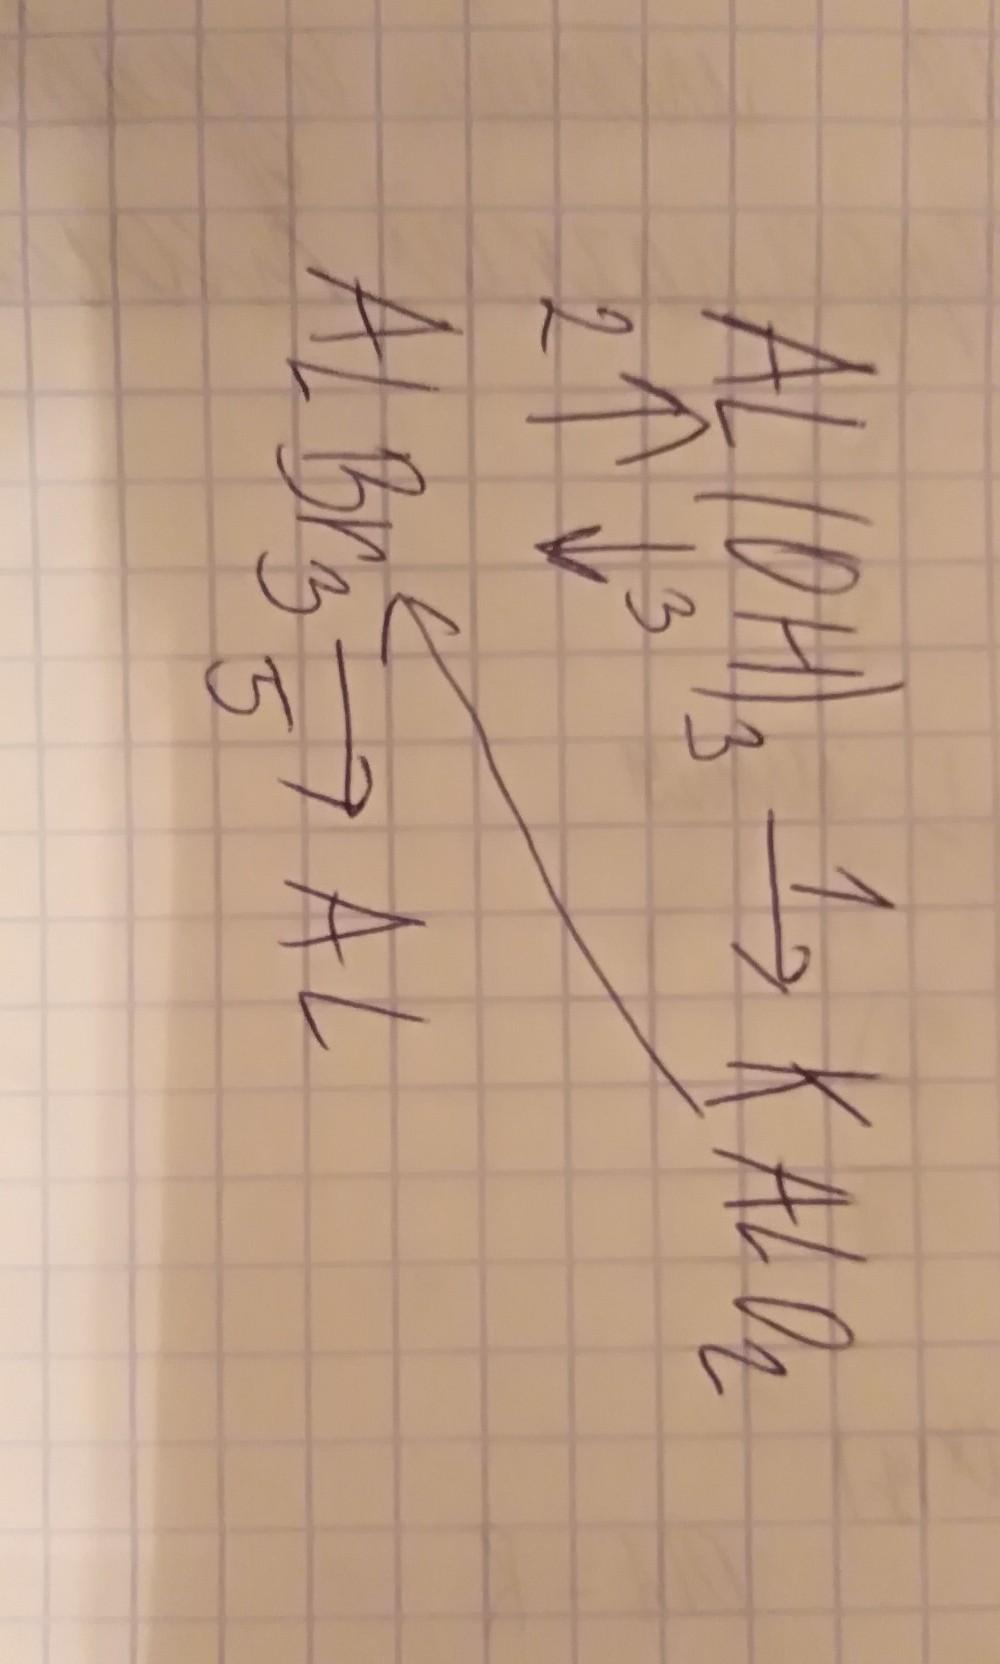 AL(OH)3 1→ KALO2
2↑ ↓3
ALBr3 → AL
5